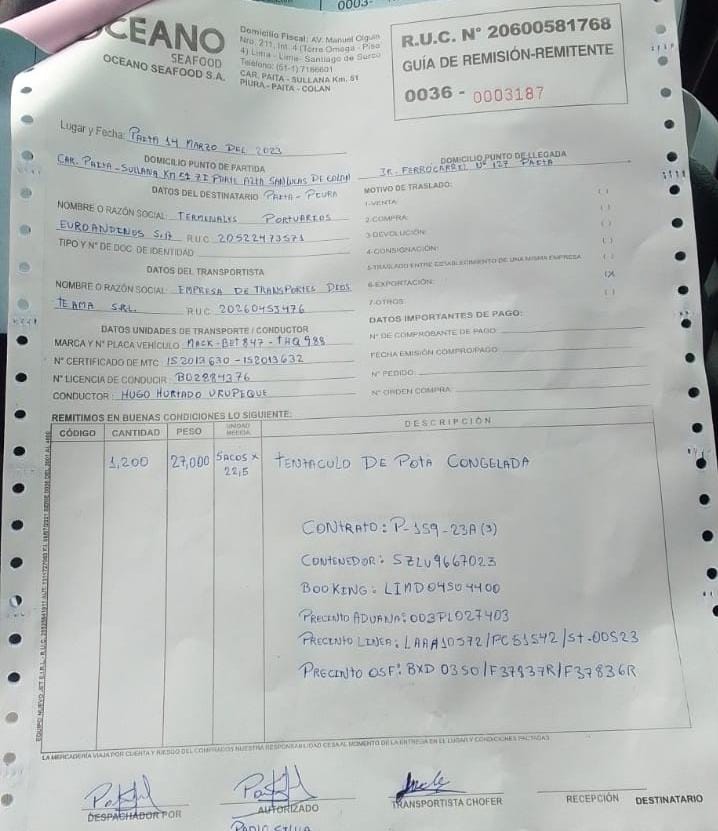 0003-
OCEANO
SEAFOOD
OCEANO SEAFOOD S.A.
Domicilio Fiscal: AV. Manuel Olguin
Nro. 211, Int. 4 (Torre Omega - Piso
4) Lima - Lima- Santiago de Surco
Teléfono: (51-1) 7166601
CAR. PAITA - SULLANA Km. 51
PIURA - PAITA - COLAN
R.U.C. N° 20600581768
GUÍA DE REMISIÓN-REMITENTE
0036 - 0003187
Lugar y Fecha: PAITA 14 MARZO DEL 2023
DOMICILIO PUNTO DE PARTIDA
CAR. PAITA - SULLANA KM 51 ZI PARTE ALTA SAN LUCAS DE COLAN
PAITA - PIURA
DOMICILIO PUNTO DE LLEGADA
JR. FERROCARREL N° 127 PAITA
DATOS DEL DESTINATARIO
NOMBRE O RAZÓN SOCIAL: TERMINALES PORTUARIOS
EUROANDINOS S.A RUC 20522473571
TIPO Y N° DE DOC DE IDENTIDAD
DATOS DEL TRANSPORTISTA
NOMBRE O RAZÓN SOCIAL: EMPRESA DE TRANSPORTES DIOS
TE AMA SRL. RUC 20260453476
DATOS UNIDADES DE TRANSPORTE / CONDUCTOR
MARCA Y N° PLACA VEHÍCULO MACK-BET 847 - THQ 988
N° CERTIFICADO DE MTC 152013630 - 152013632
N° LICENCIA DE CONDUCIR: B02884376
CONDUCTOR: HUGO HURTADO URUPEQUE
MOTIVO DE TRASLADO:
1-VENTA: ( )
2-COMPRA: ( )
3-DEVOLUCIÓN: ( )
4-CONSIGNACIÓN: ( )
5-TRASLADO ENTRE ESTABLECIMIENTO DE UNA MISMA EMPRESA ( )
6-EXPORTACIÓN: (X
7-OTROS ( )
DATOS IMPORTANTES DE PAGO:
N° DE COMPROBANTE DE PAGO:
FECHA EMISIÓN COMPRO/PAGO
N° PEDIDO:
N° ORDEN COMPRA:
REMITIMOS EN BUENAS CONDICIONES LO SIGUIENTE:
CÓDIGO CANTIDAD PESO UNIDAD MEDIDA DESCRIPCIÓN
1,200 27,000 SACOS x 22,5 TENTACULO DE POTA CONGELADA
CONTRATO: P-159-23A(3)
CONTENEDOR: SZLU9667023
BOOKING: LIMD04504400
PRECINTO ADUANA: 003PL027403
PRECINTO LINEA: LAAA10572/PC51542/St.00523
PRECINTO OSF: BXD 0350/F37837R/F37836R
LA MERCADERÍA VIAJA POR CUENTA Y RIESGO DEL COMPRADOS NUESTRA RESPONSABILIDAD CESA AL MOMENTO DE LA ENTREGA EN EL LUGAR Y CONDICIONES PACTADAS
DESPACHADOR POR
AUTORIZADO
TRANSPORTISTA CHOFER
RECEPCIÓN DESTINATARIO